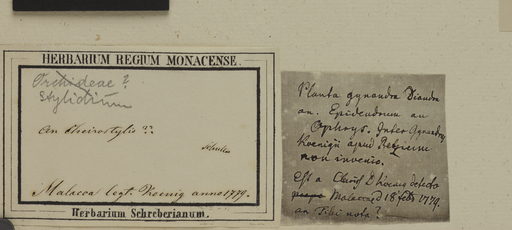 HERBARIUM REGIUM MONACENSE.
Orchideae?
Stylidium
An Cheirostylis??
Malacca legt. Koenig anno 1779.
Herbarium Schreberianum.
Planta gynandra Diandra
an. Epidendrum an
Ophrys. Inter Gynandras
Koenigii apud Retzium
non invenio.
Est a Claris. D. Koenig detecta
Malaccae d 18 febr 1779
an Tibi nota?